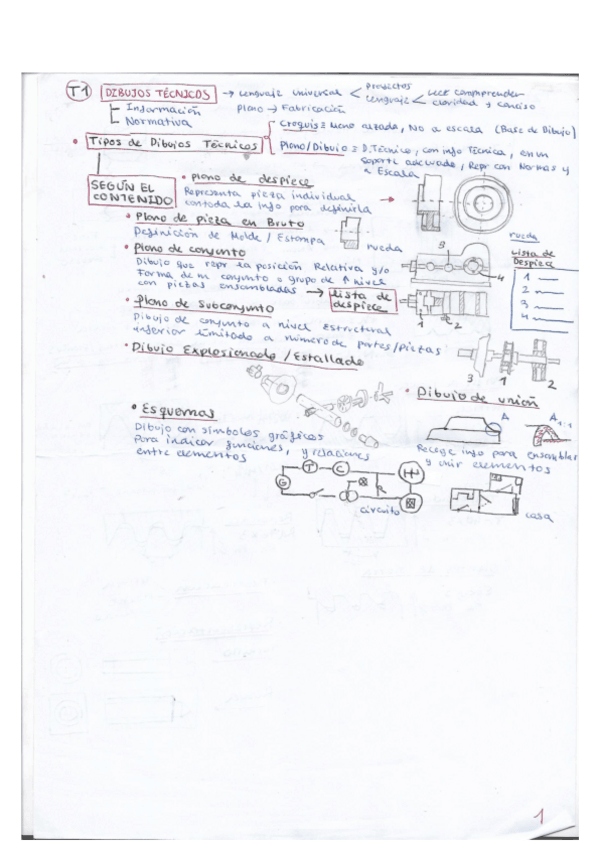 T1 DIBUJOS TÉCNICOS → Lenguaje Universal < Proyectos
Lenguaje < Leer Comprender
claridad y conciso
Información
Plano → Fabricación
Normativa
• Tipos de Dibujos Técnicos
Croquis ≡ Mano alzada, No a escala (Base de Dibujo)
Plano/Dibujo ≡ D. Técnico, con info Técnica, en un
soporte adecuado, Repr con Normas y
a Escala
SEGÚN EL
CONTENIDO
• Plano de despiece
Representa pieza individual
con toda la info para definirla
• Plano de pieza en Bruto
Definición de Molde / Estampa
rueda
rueda
• Plano de conjunto
Dibujo que repr la posición Relativa y/o
Forma de un conjunto o grupo de ↑ nivel
con piezas ensambladas → Lista de
despiece
3
4
1
2
Lista de
Despiece
1
2
3
4
• Plano de subconjunto
Dibujo de conjunto a nivel estructural
inferior limitado a número de partes/piezas
• Dibujo Explosionado / Estallado
3
1
2
• Dibujo de unión
A
A
Recoge info para ensamblar
y unir elementos
• Esquemas
Dibujo con símbolos gráficos
Para indicar funciones, y relaciones
entre elementos
G
T
C
circuito
casa
1